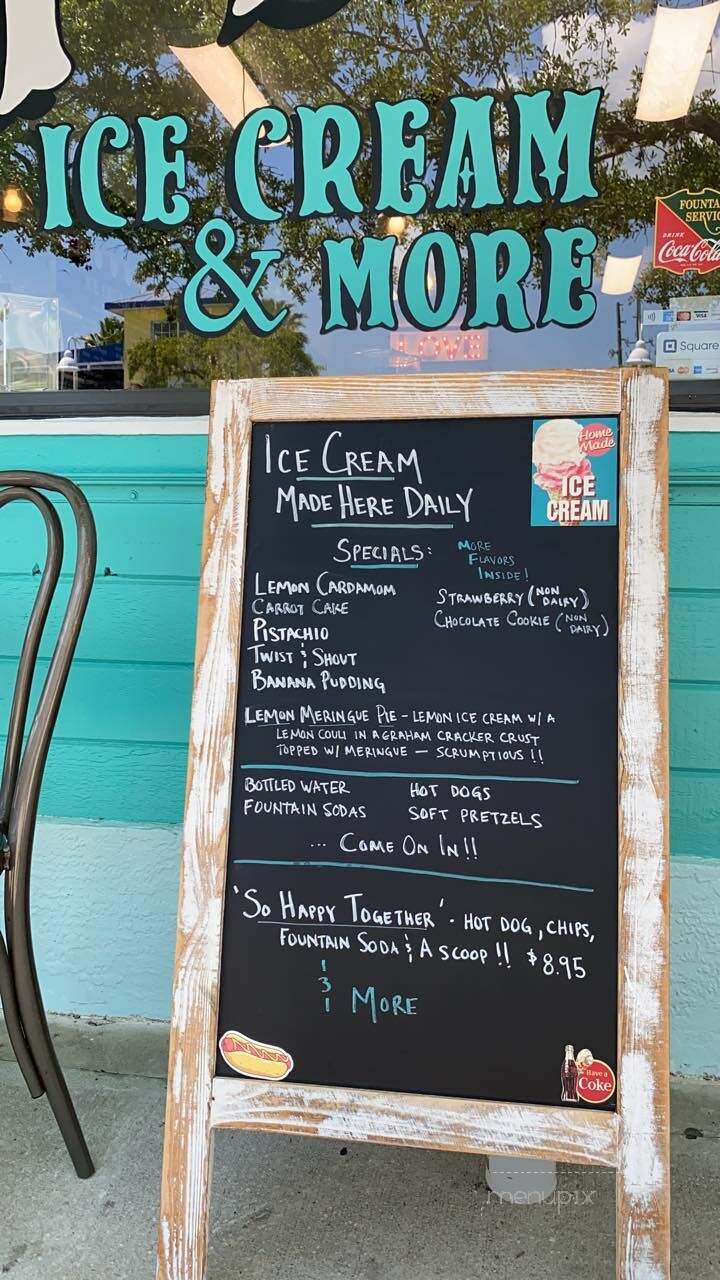 ICE CREAM
& MORE
FOUNTA
SERVI
DRINK
Coca-Cola
LOVE
Square
ICE CREAM
MADE HERE DAILY
Home
Made
ICE
CREAM
SPECIALS:
MORE
FLAVORS
INSIDE!
LEMON CARDAMOM
CARROT CAKE
PISTACHIO
TWIST & SHOUT
BANANA PUDDING
STRAWBERRY (NON DAIRY)
CHOCOLATE COOKIE (NON DAIRY)
LEMON MERINGUE PIE - LEMON ICE CREAM W/ A
LEMON COULI IN A GRAHAM CRACKER CRUST
TOPPED W/ MERINGUE — SCRUMPTIOUS !!
BOTTLED WATER
FOUNTAIN SODAS
HOT DOGS
SOFT PRETZELS
... COME ON IN!!
'SO HAPPY TOGETHER' - HOT DOG, CHIPS,
FOUNTAIN SODA & A SCOOP !! $8.95
& MORE
Have a
Coke
menupix